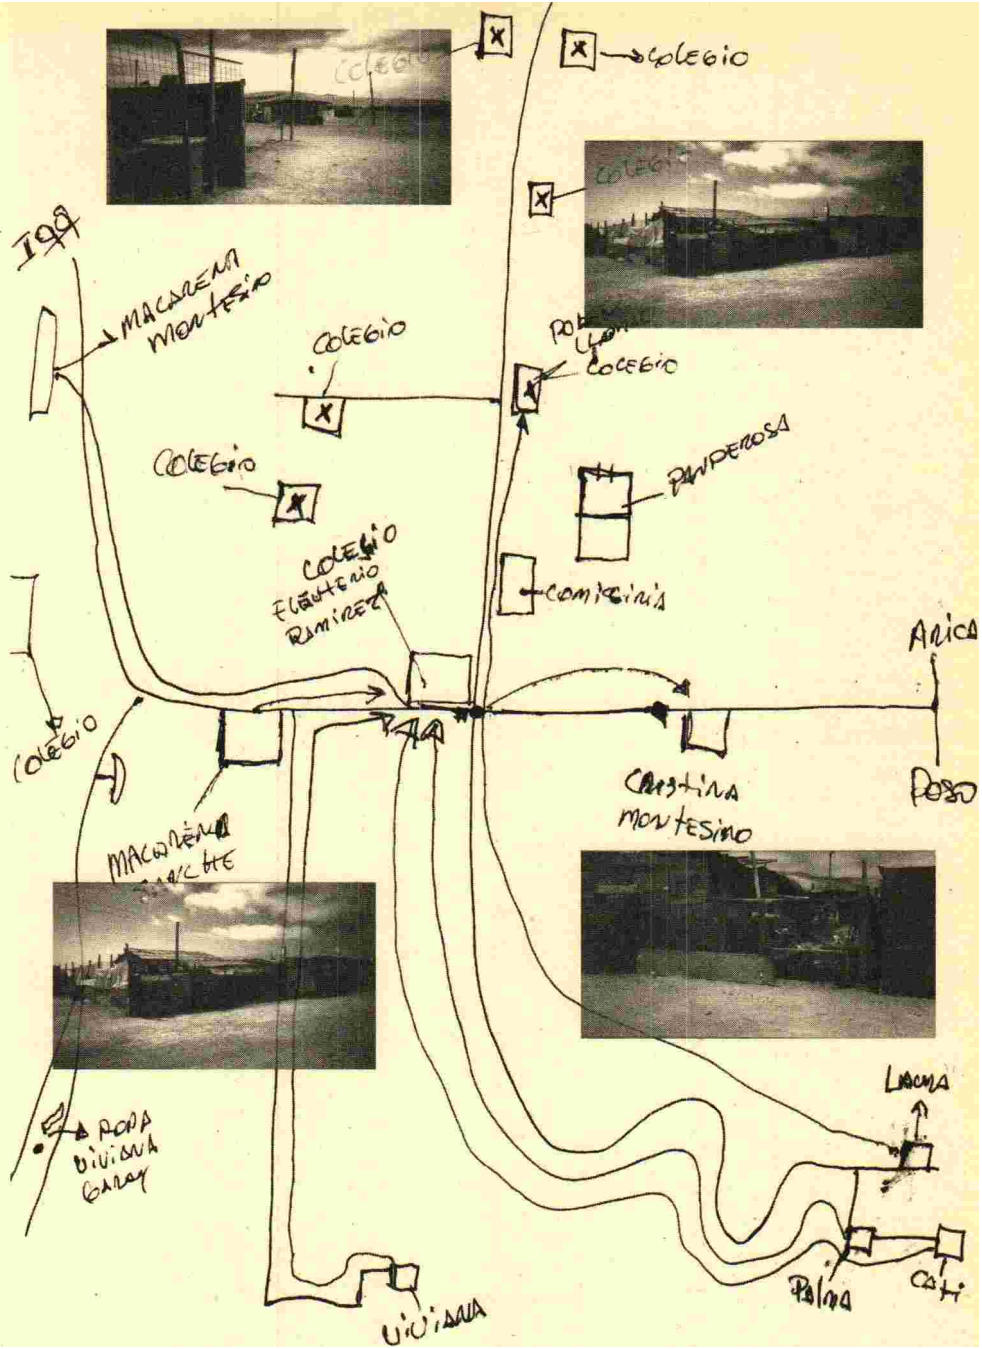 COLEGIO
COLEGIO
COLEGIO
IQQ
MACARENA
MONTESINO
COLEGIO
COLEGIO
COLEGIO
PANDEROSA
COLEGIO
ELEUTERIO
RAMIREZ
COMISIRIA
ARICA
COLEGIO
POSO
CRISTINA
MONTESINO
MACARENA
LAGMA
ROPA
VIVIANA
GARAY
PALMA
CATI
VIVIANA